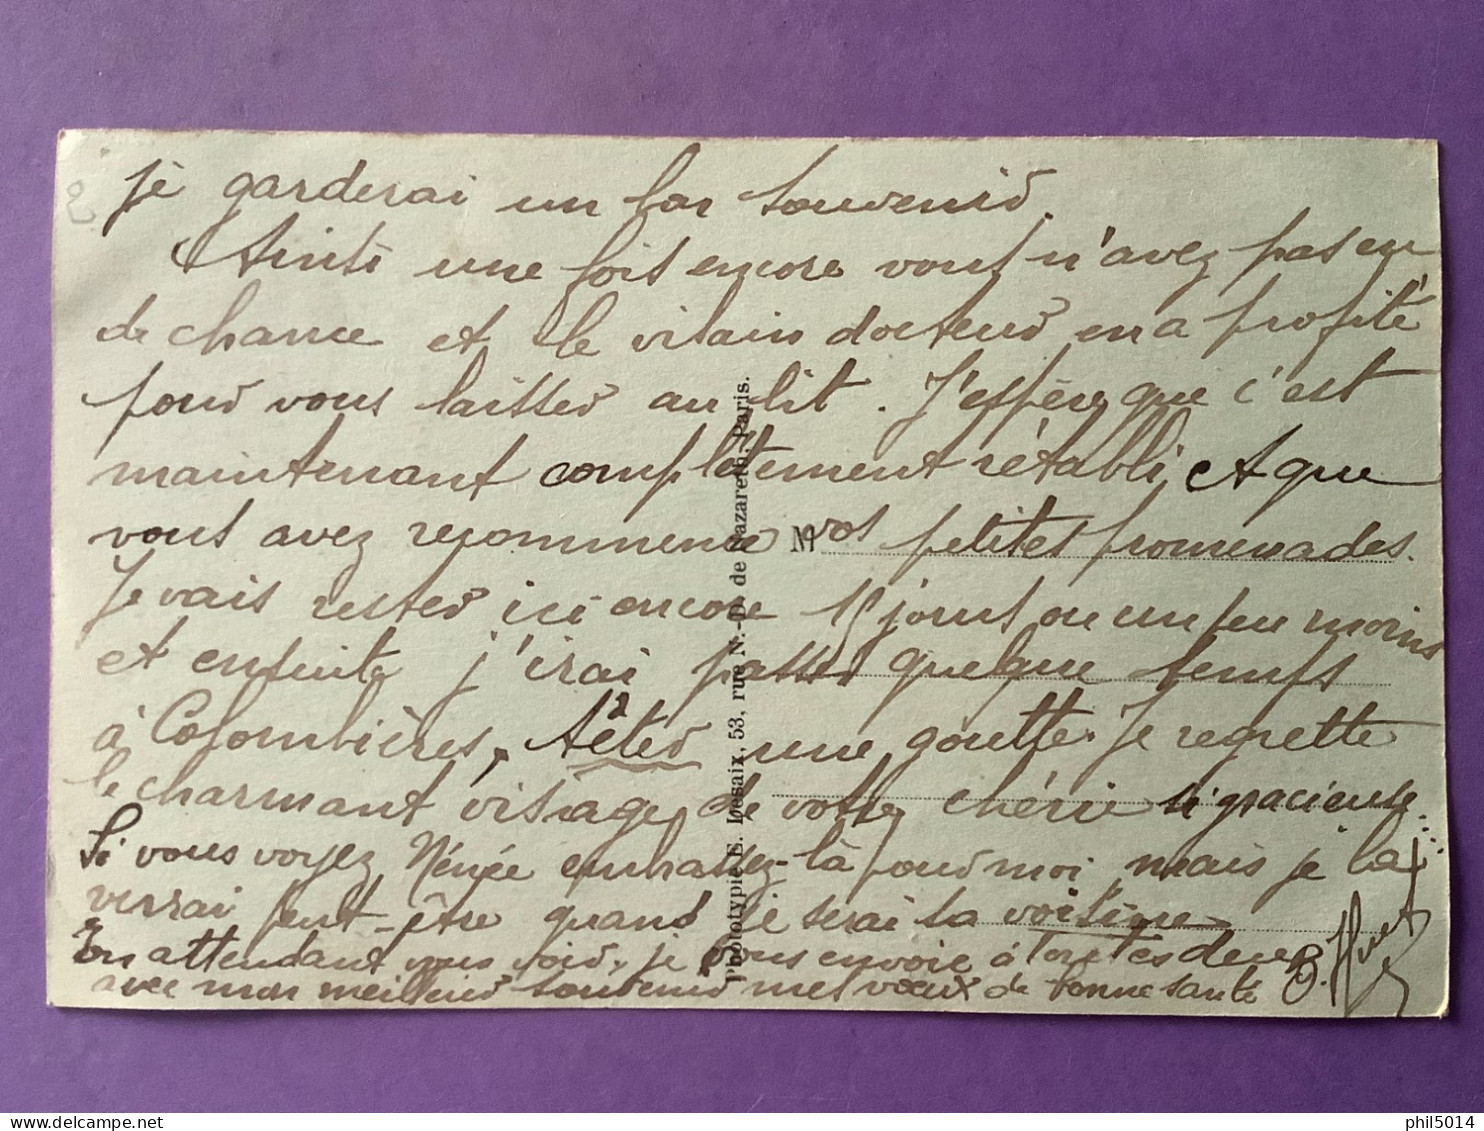 2
je garderai un bon souvenir.
Ainsi une fois encore vous n'avez pas eu
de chance et le vilain docteur en a profité
pour vous laisser au lit. J'espère que c'est
maintenant complètement rétabli et que
vous avez recommencé vos petites promenades.
M
Je vais rester ici encore 15 jours ou un peu moins
et ensuite j'irai passer quelque temps
à Colombières, têter une goutte. Je regrette
le charmant visage de votre chérie si gracieuse...
Si vous voyez Renée embrassez-là pour moi mais je la
verrai peut-être quand je serai sa voisine
En attendant vous voir, je vous envoie à toutes deux
avec mon meilleur souvenir mes vœux de bonne santé
Huet
Phototypie E. Desaix, 53, rue N.-D. de Nazareth, Paris.
phil5014